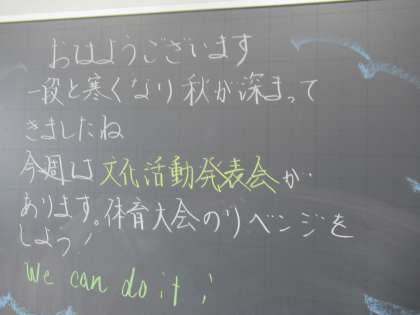 おはようございます
一段と寒くなり秋が深まって
きましたね
今週は文化活動発表会が
あります。体育大会のリベンジを
しよう!
We can do it!